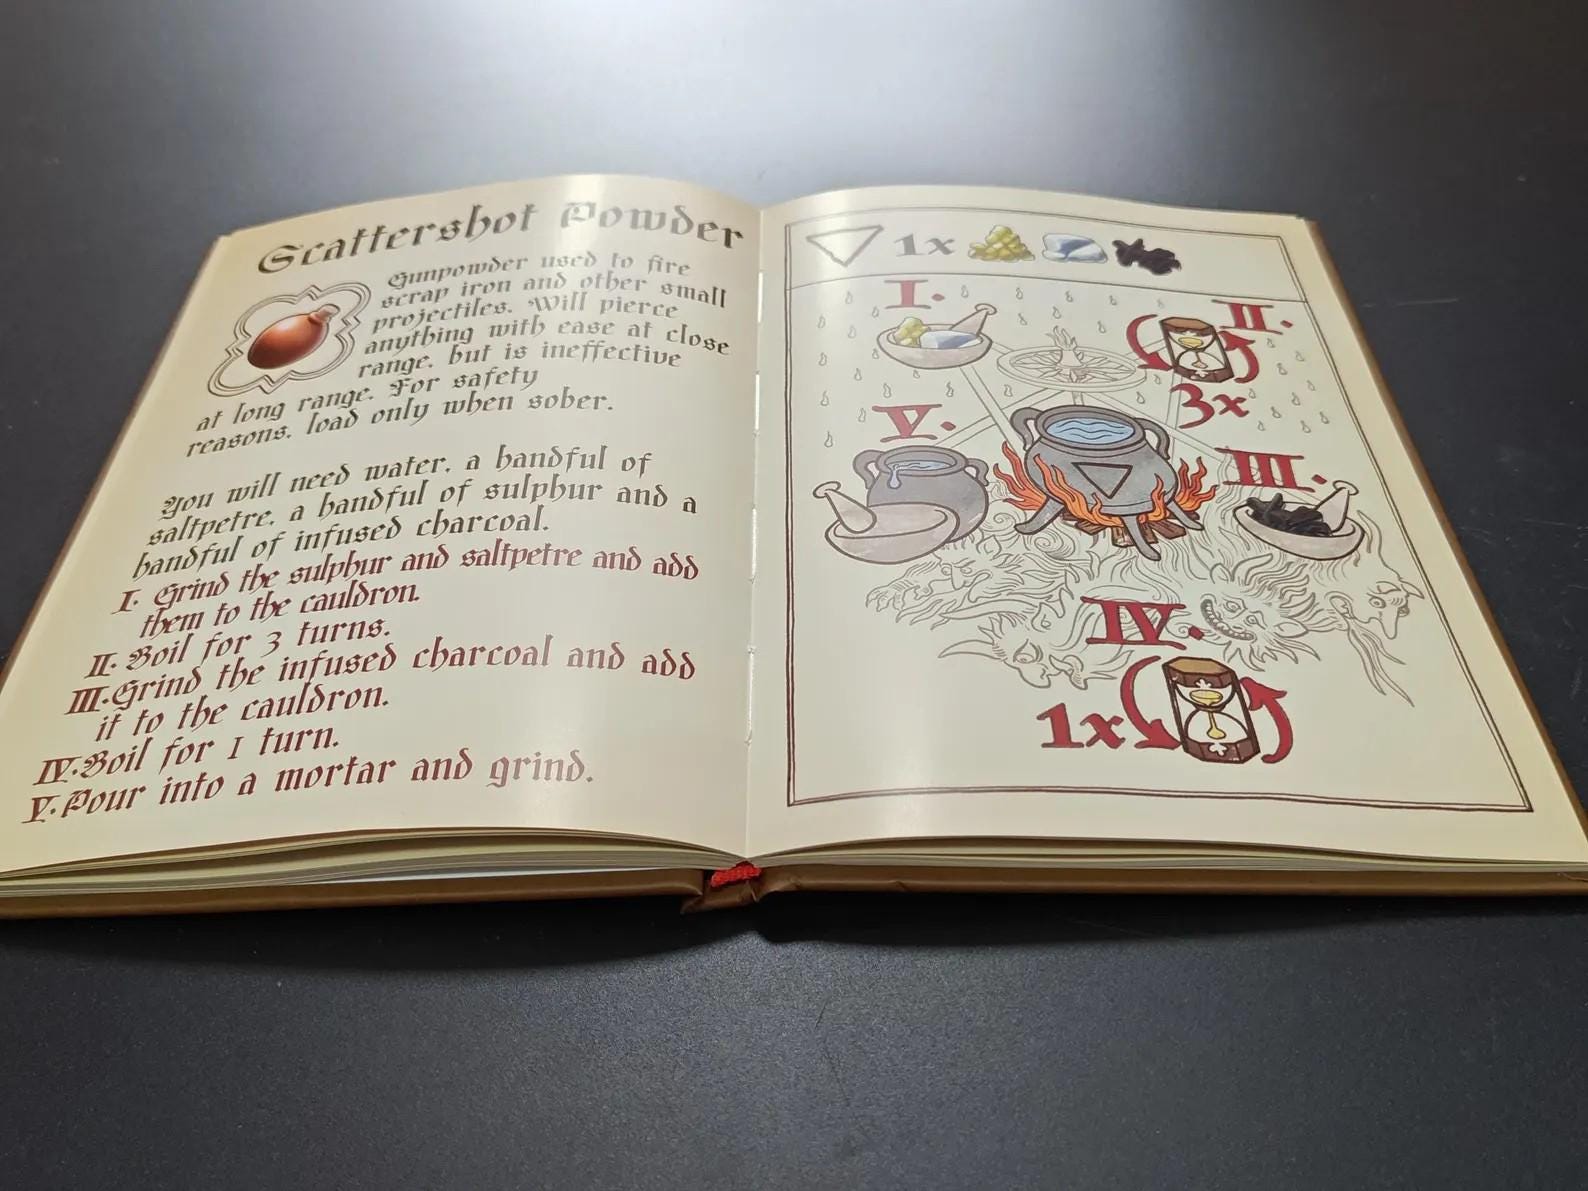 Scattershot Powder
Gunpowder used to fire
scrap iron and other small
projectiles. Will pierce
anything with ease at close
range, but is ineffective
at long range. For safety
reasons, load only when sober.
You will need water, a handful of
saltpetre, a handful of sulphur and a
handful of infused charcoal.
I. Grind the sulphur and saltpetre and add
them to the cauldron.
II. Boil for 3 turns.
III. Grind the infused charcoal and add
it to the cauldron.
IV. Boil for 1 turn.
V. Pour into a mortar and grind.
1x
I.
II.
3x
V.
III.
IV.
1x